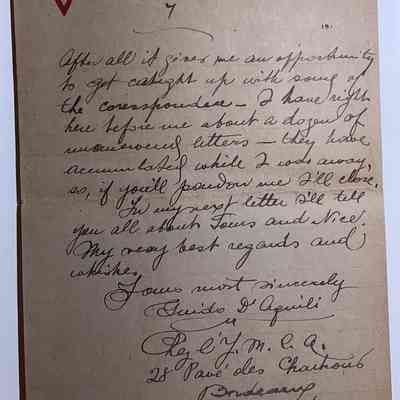 7
19
After all it gives me an opportunity
to get caught up with some of
the corespondence – I have right
here before me about a dozen of
unanswered letters – they have
accumulated while I was away,
so, if you'll pardon me I'll close.
In my next letter I'll tell
you all about Tours and Nice.
My very best regards and
wishes.
Yours most sincerely
Guido D'Aquili
Chez l'Y. M. C. A.
28 Pavé des Chartrons
Bordeaux,